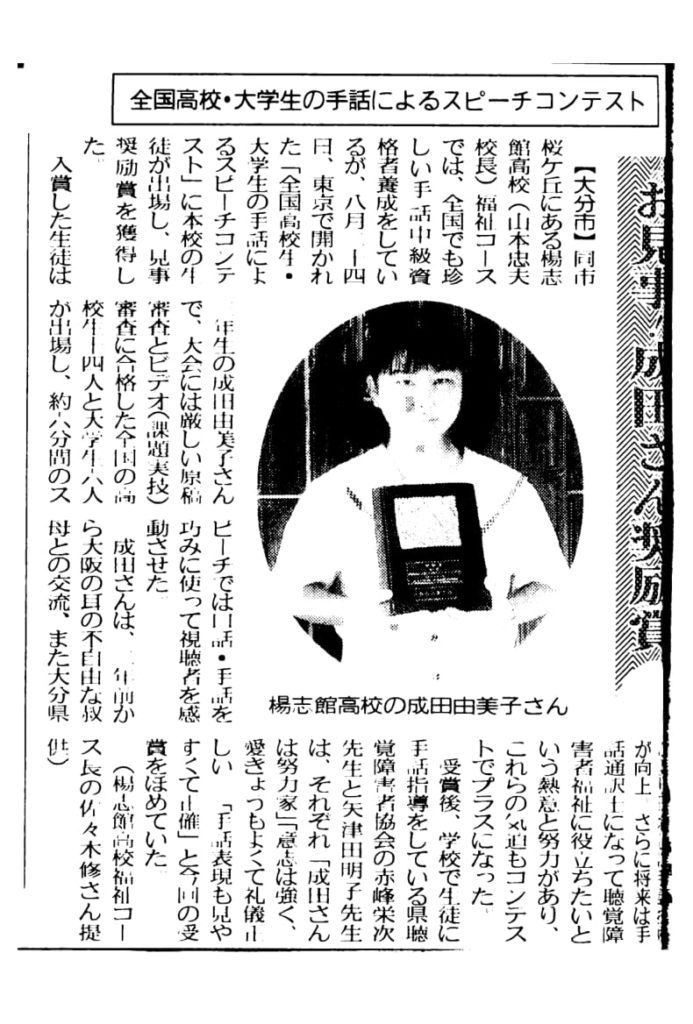 全国高校・大学生の手話によるスピーチコンテスト
お見事!!成田さん奨励賞
【大分市】同市
桜ケ丘にある楊志
館高校（山本忠夫
校長）福祉コース
では、全国でも珍
しい手話中級資
格者養成をしてい
るが、八月二十四
日、東京で開かれ
た「全国高校生・
大学生の手話によ
るスピーチコンテ
スト」に本校の生
徒が出場し、見事
奨励賞を獲得し
た。
入賞した生徒は
年生の成田由美子さん
で、大会には厳しい原稿
審査とビデオ（課題実技）
審査に合格した全国の高
校生十四人と大学生六人
が出場し、約六分間のス
ピーチでは口話・手話を
巧みに使って視聴者を感
動させた
成田さんは、年前か
ら大阪の耳の不自由な叔
母との交流、また大分県
が向上　さらに将来は手
話通訳士になって聴覚障
害者福祉に役立ちたいと
いう熱意と努力があり、
これらの気迫もコンテス
トでプラスになった
受賞後、学校で生徒に
手話指導をしている県聴
覚障害者協会の赤峰栄次
先生と矢津田明子先生
は、それぞれ「成田さん
は努力家」「意志は強く、
愛きょうもよくて礼儀正
しい　「手話表現も見や
すくて正確」と今回の受
賞をほめていた
（楊志館高校福祉コー
ス長の佐々木修さん提
供）
楊志館高校の成田由美子さん